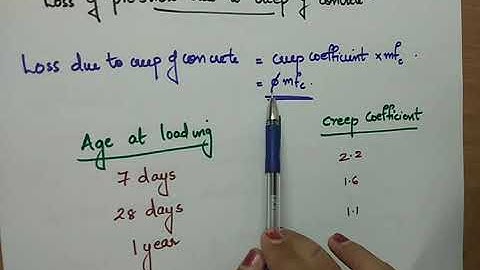 Loss of due to creep of concrete
Loss due to creep of concrete = creep coefficient × mfc.
= φ mfc.
Age at loading
Creep Coefficient
7 days
2.2
28 days
1.6
1 year
1.1